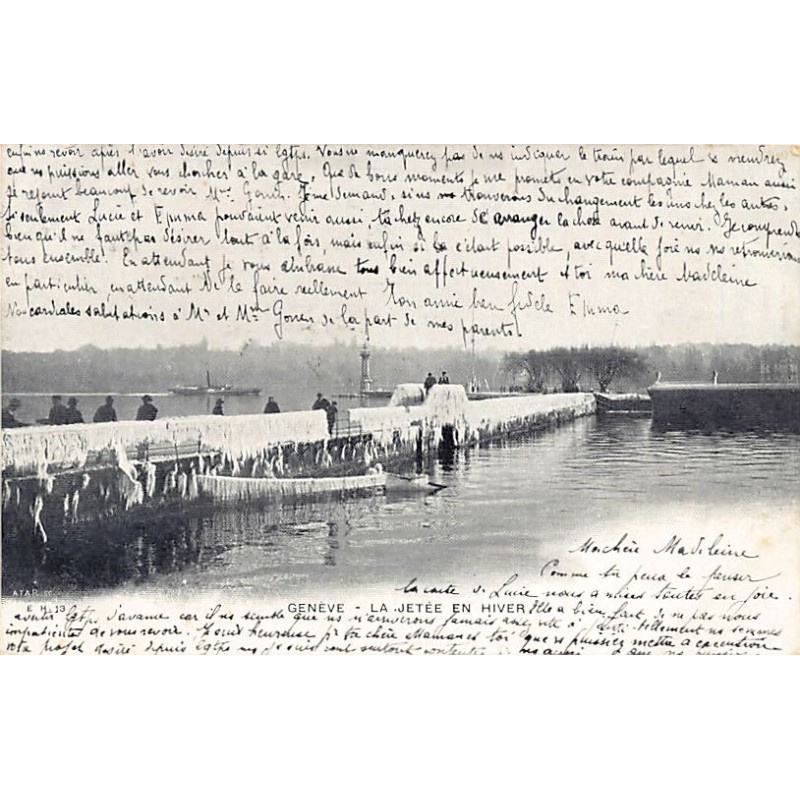 enfin ns revoir après l'avoir désiré depuis si lgtps. Vous ne manquerez pas de ns indiquer le train par lequel vs viendrez
que ns puissions aller vous chercher à la gare. Que de bons moments je me promets en votre compagnie Maman aussi
se réjouit beaucoup de revoir Mme Je me demande si ns ns trouverons du changement les uns chez les autres.
Si seulement Lucie et Emma pouvaient venir aussi, tachez encore de arranger la chose avant de venir. Je comprends
bien qu'il ne faut pas désirer tout à la fois, mais enfin si ça c'était possible, avec quelle joie ns ns retrouverions
tous ensemble. En attendant je vous embrasse tous bien affectueusement et toi ma chère Madeleine
en particulier en attendant de le faire réellement Ton amie bien fidèle Emma
Nos cordiales salutations à Mr et Mme de la part de mes parents.
Ma chère Madeleine
Comme tu peux le penser
la carte de Lucie nous a mises toutes en joie.
ATAR
E H. 13 GENÈVE - LA JETÉE EN HIVER Elle a bien fait de ne pas nous
avertir lgtps d'avance car il ns semble que ns n'arriverons jamais assez vite à tellement ns sommes
impatientes de vous revoir. heureuse ma chère Maman et toi que vs puissiez mettre à exécution
projet désiré depuis lgtps